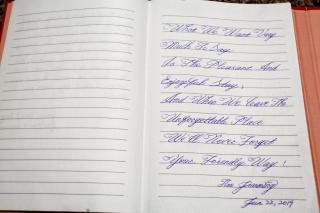 What We Want Say
Much To Say
Is The Pleasant And
Enjoyful Stay,
And When We leave The
Unforgettable Place
We'll Never Forget
Your Friendly Way!
Jan 22, 2019